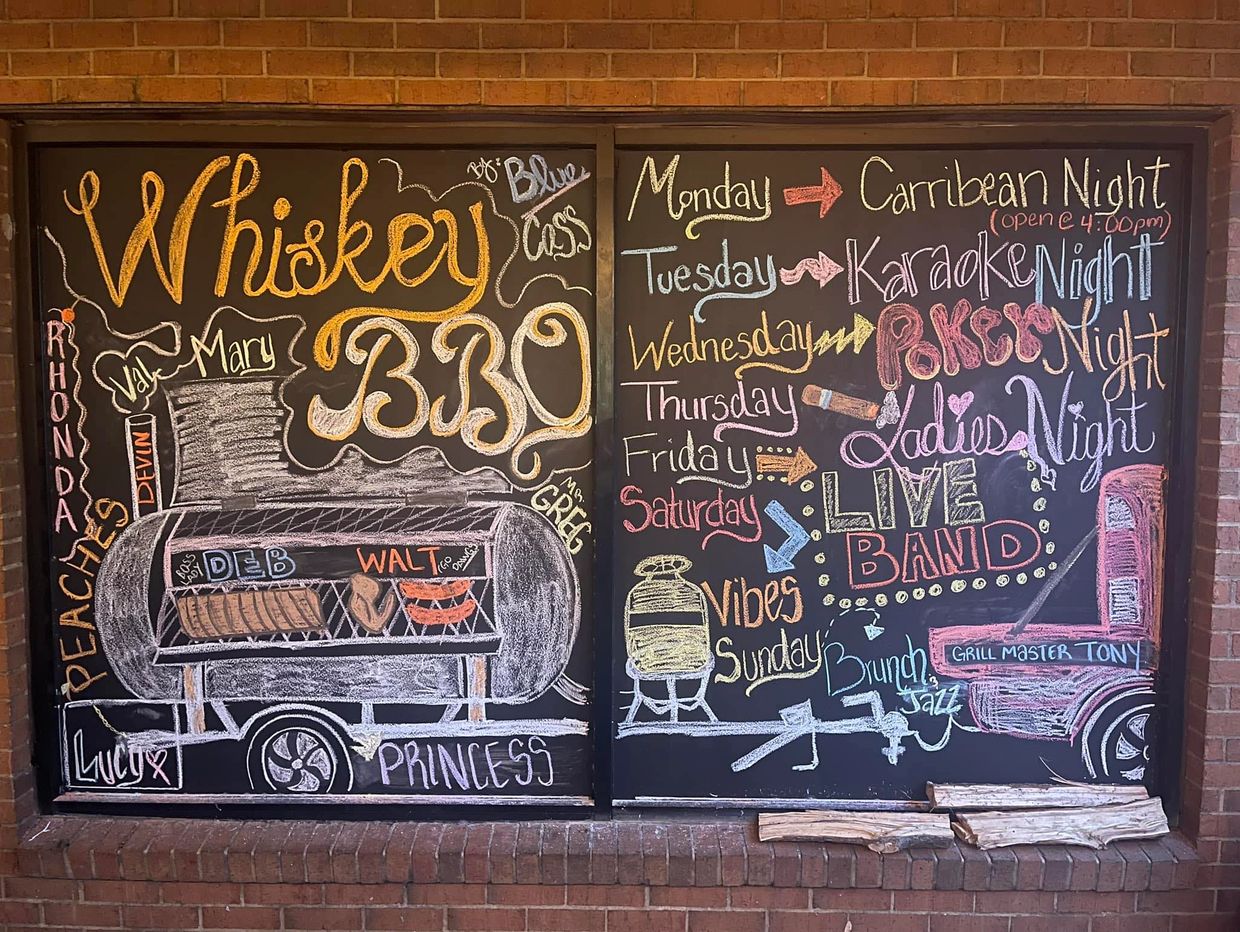 Whiskey
BBQ
By:
Blue
Cass
RHONDA
Val
Mary
DEVIN
PEACHES
Mr.
GREG
BOSS LADY
DEB
WALT
GO DAWGS
Lucy
PRINCESS
Monday Carribean Night
(open @ 4:00pm)
Tuesday Karaoke Night
Wednesday Poker Night
Thursday Ladies Night
Friday LIVE
Saturday BAND
Vibes
Sunday Brunch &
Jazz
GRILL MASTER TONY